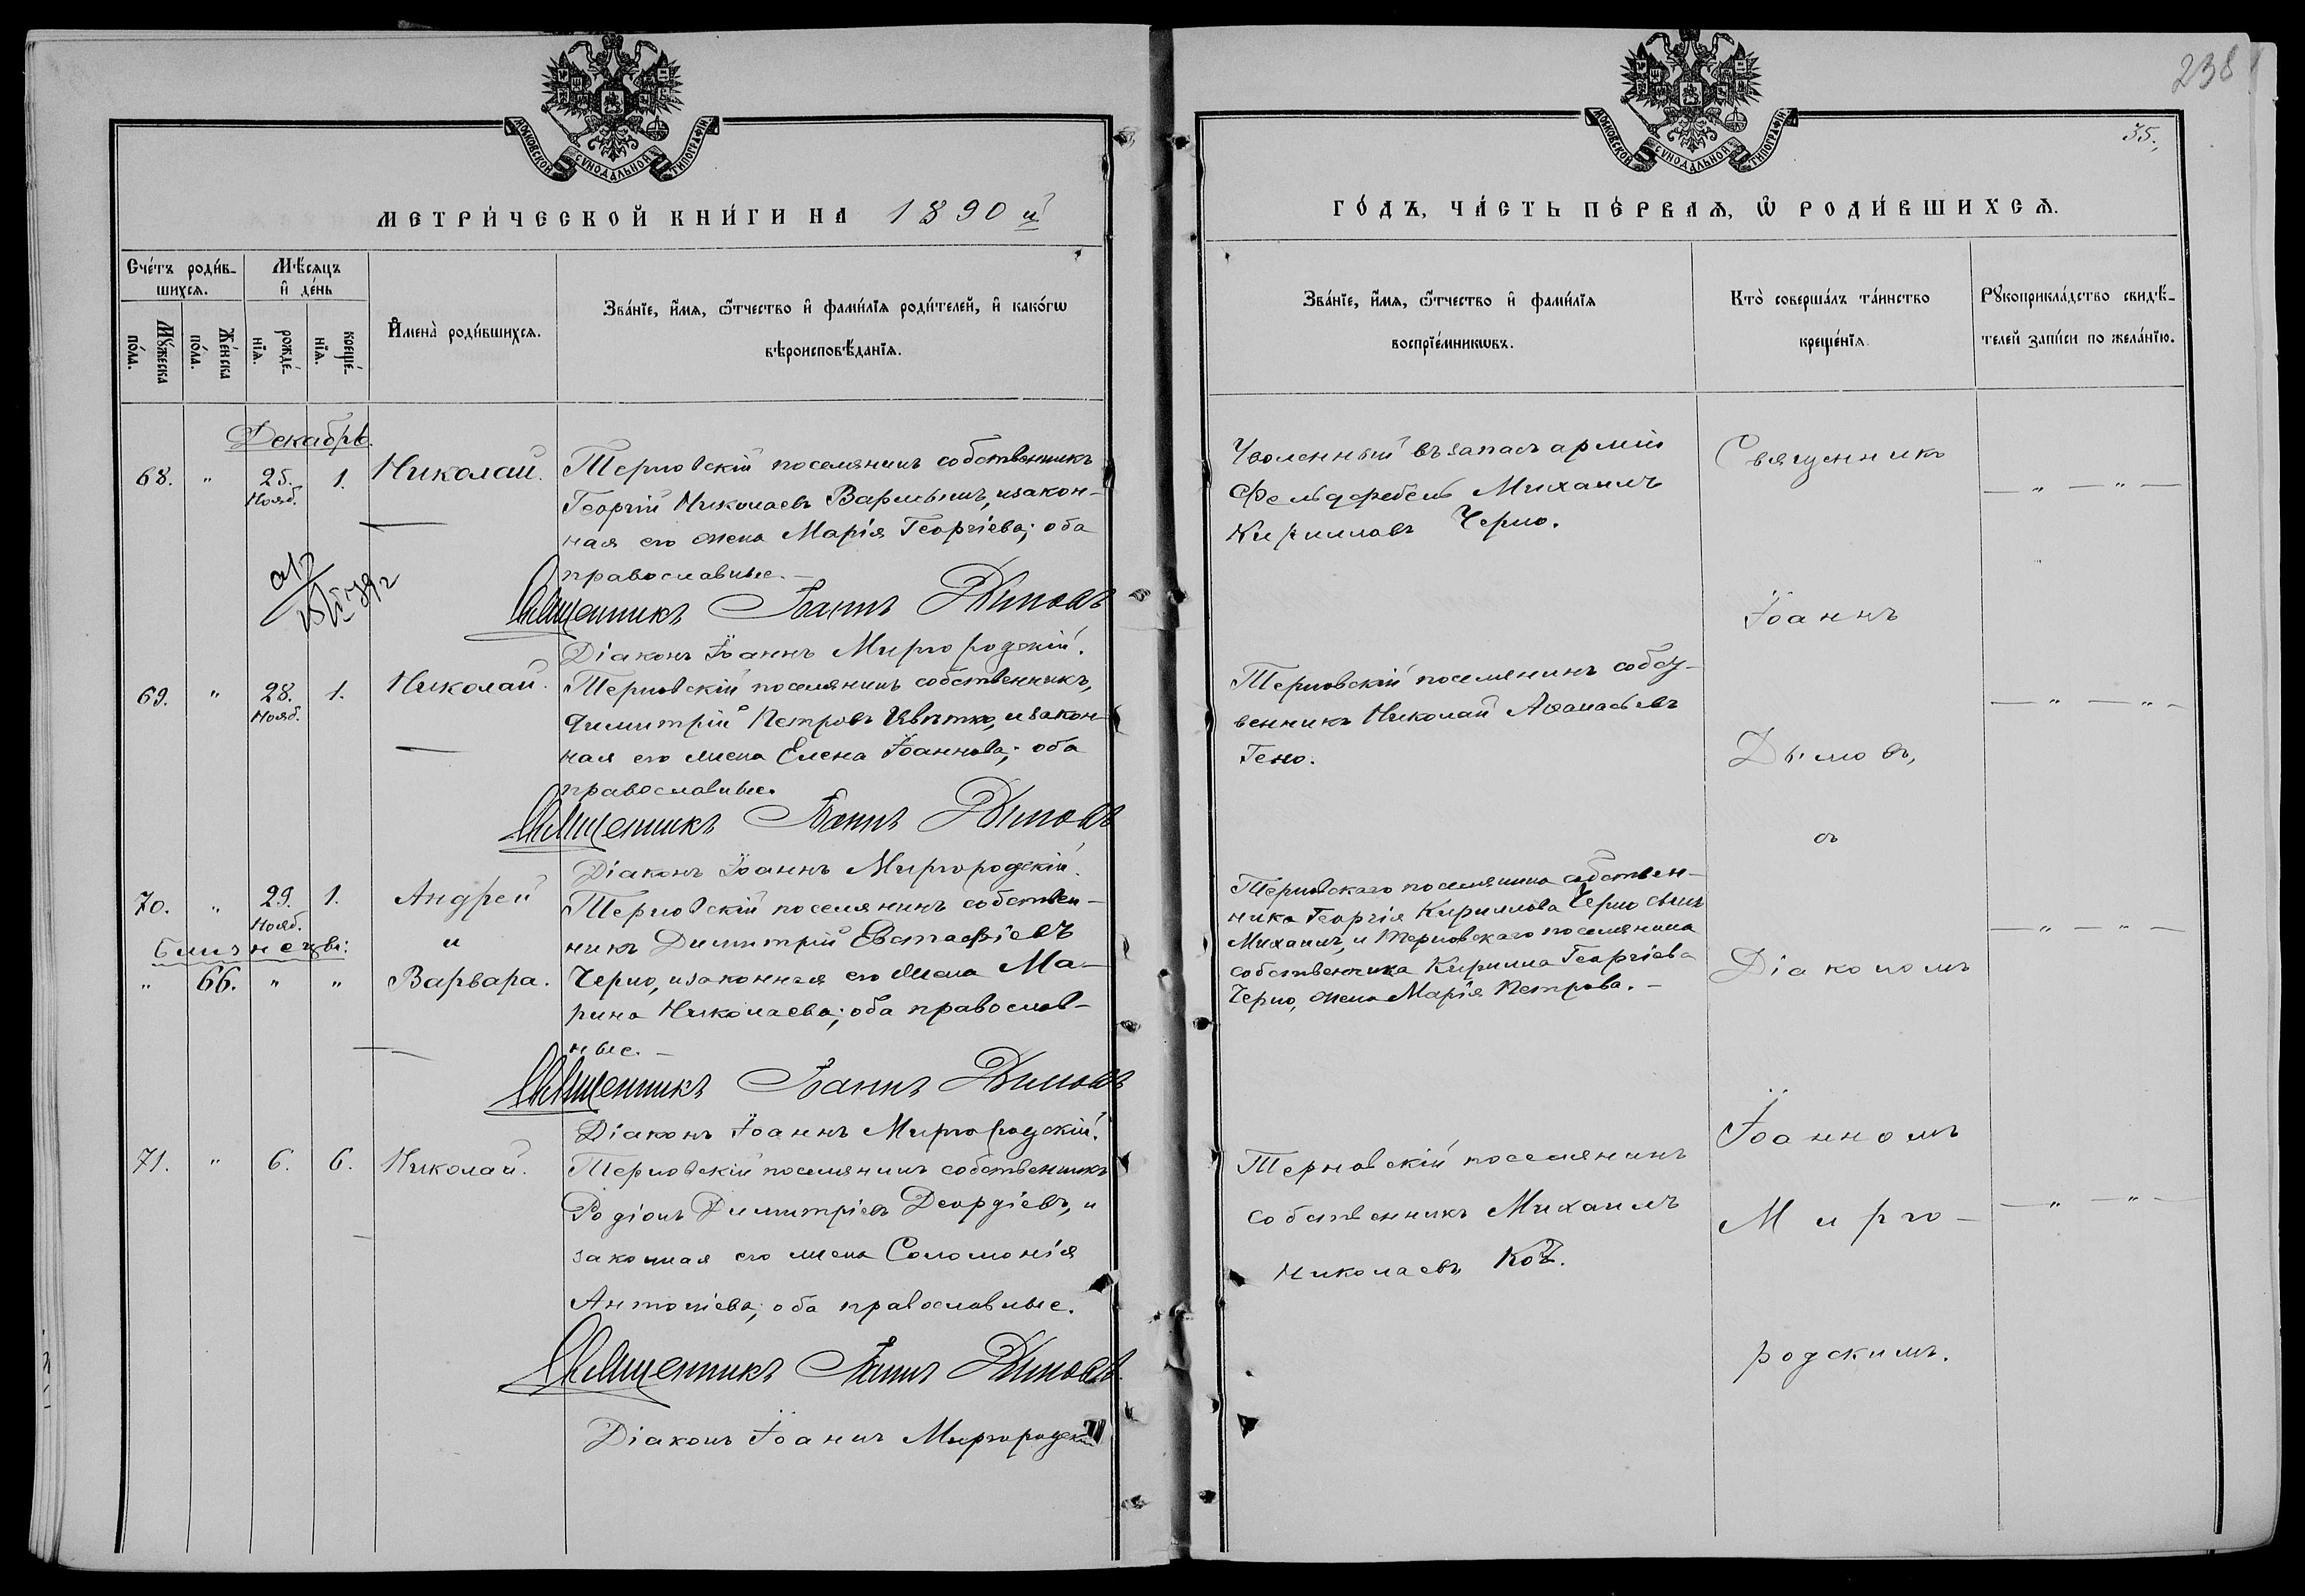 МОСКОВСКОЙ СУНОДАЛЬНОЙ ТИПОГРАФІИ
МЕТРИ́ЧЕСКОЙ КНИ́ГИ НА 1890 й
Сче́тъ роди́в-
шихся.
Мѣ́сяцъ
и҆ де́нь
Мꙋ́жеска
по́ла.
Же́нска
по́ла.
рожде́-
нїѧ.
креще́-
нїѧ.
И҆мена̀ роди́вшихсѧ.
Зва́нїе, и҆́мѧ, ѻ҆́тчество и҆ фами́лїѧ роди́телей, и҆ како́гѡ
вѣроисповѣ́данїѧ.
Декабрь.
68. " 25. 1. Николай.
Нояб.
Терновскій поселянинъ собственникъ
Георгій Николаевъ Варлыкъ, и закон-
ная его жена Марія Георгіева; оба
православные.
Священникъ Іоаннъ Дымовъ
Діаконъ Іоаннъ Миргородскій.
69. " 28. 1. Николай.
Нояб.
Терновскій поселянинъ собственникъ,
Димитрій Петровъ Цвѣтко, и закон-
ная его жена Елена Іоаннова; оба
православные.
Священникъ Іоаннъ Дымовъ
Діаконъ Іоаннъ Миргородскій.
70. " 29. 1. Андрей
Нояб.
близнецы: и
" 66. " " Варвара.
Терновскій поселянинъ собствен-
никъ Димитрій Евстафіевъ
Черно, и законная его жена Ма-
рина Николаева; оба православ-
ные.
Священникъ Іоаннъ Дымовъ
Діаконъ Іоаннъ Миргородскій.
71. " 6. 6. Николай.
Терновскій поселянинъ собственникъ
Родіонъ Димитріевъ Деордіевъ, и
законная его жена Соломонія
Антоніева; оба православные.
Священникъ Іоаннъ Дымовъ.
Діаконъ Іоаннъ Миргородскій
МОСКОВСКОЙ СУНОДАЛЬНОЙ ТИПОГРАФІИ
238
35.
ГО́ДЪ, ЧА́СТЬ ПЕ́РВАѦ, Ѡ҆ РОДИ́ВШИХСѦ.
Зва́нїе, и҆́мѧ, ѻ҆́тчество и҆ фами́лїѧ
воспрїе́мникѡвъ.
Кто̀ соверша́лъ та́инство
креще́нїѧ.
Рꙋкоприкла́дство свидѣ́-
телей за́писи по жела́нїю.
Уволенный въ запасъ арміи
Фельдфебель Михаилъ
Кирилловъ Черно.
Терновскій поселянинъ собст-
венникъ Николай Аѳанасьевъ
Гено.
Терновскаго поселянина собствен-
ника Георгія Кириллова Черно сынъ
Михаилъ, и терновскаго поселянина
собственника Кирилла Георгіева
Черно, жена Марія Петрова.
Терновскій поселянинъ
собственникъ Михаилъ
Николаевъ Коч.
Священникъ
Іоаннъ
Дымовъ,
съ
Діакономъ
Іоанномъ
Мирго-
родскимъ.
— " — " —
— " — " —
— " — " —
— " — " —